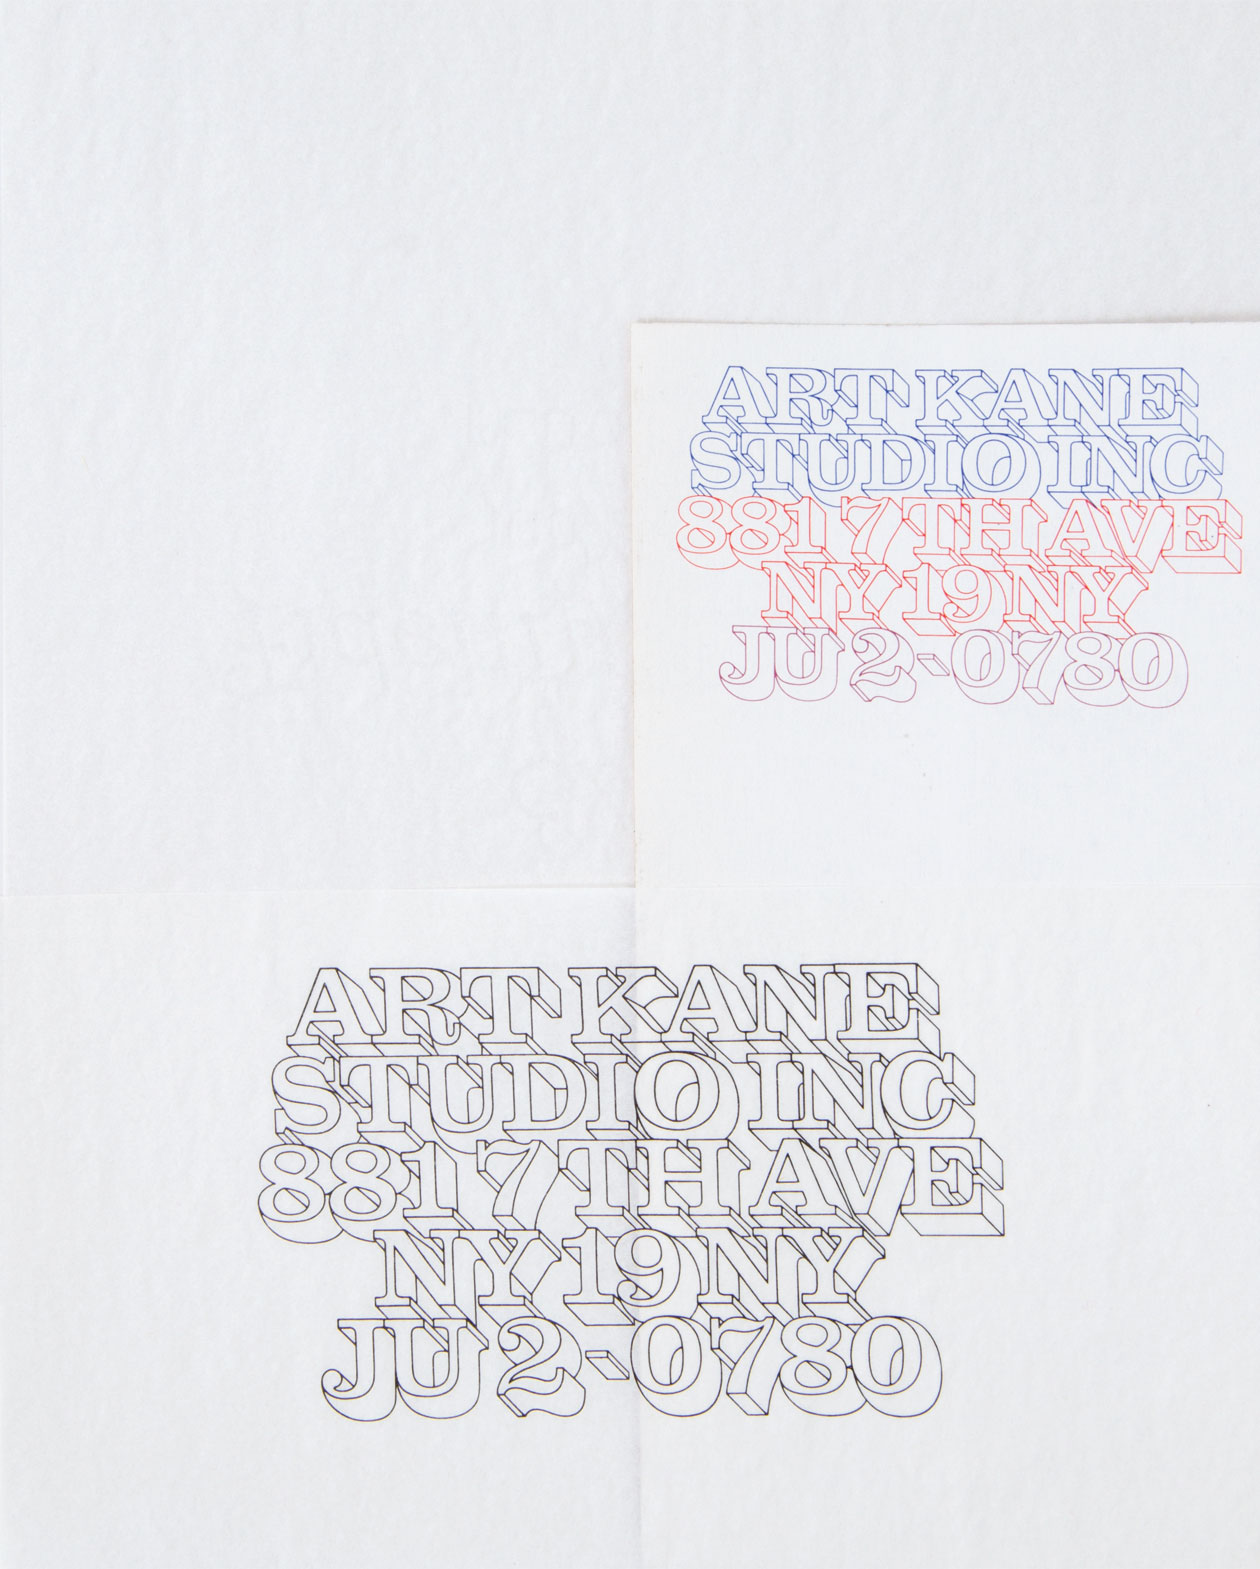 ART KANE
STUDIO INC
881 7TH AVE
NY 19 NY
JU 2-0780
ART KANE
STUDIO INC
881 7TH AVE
NY 19 NY
JU 2-0780